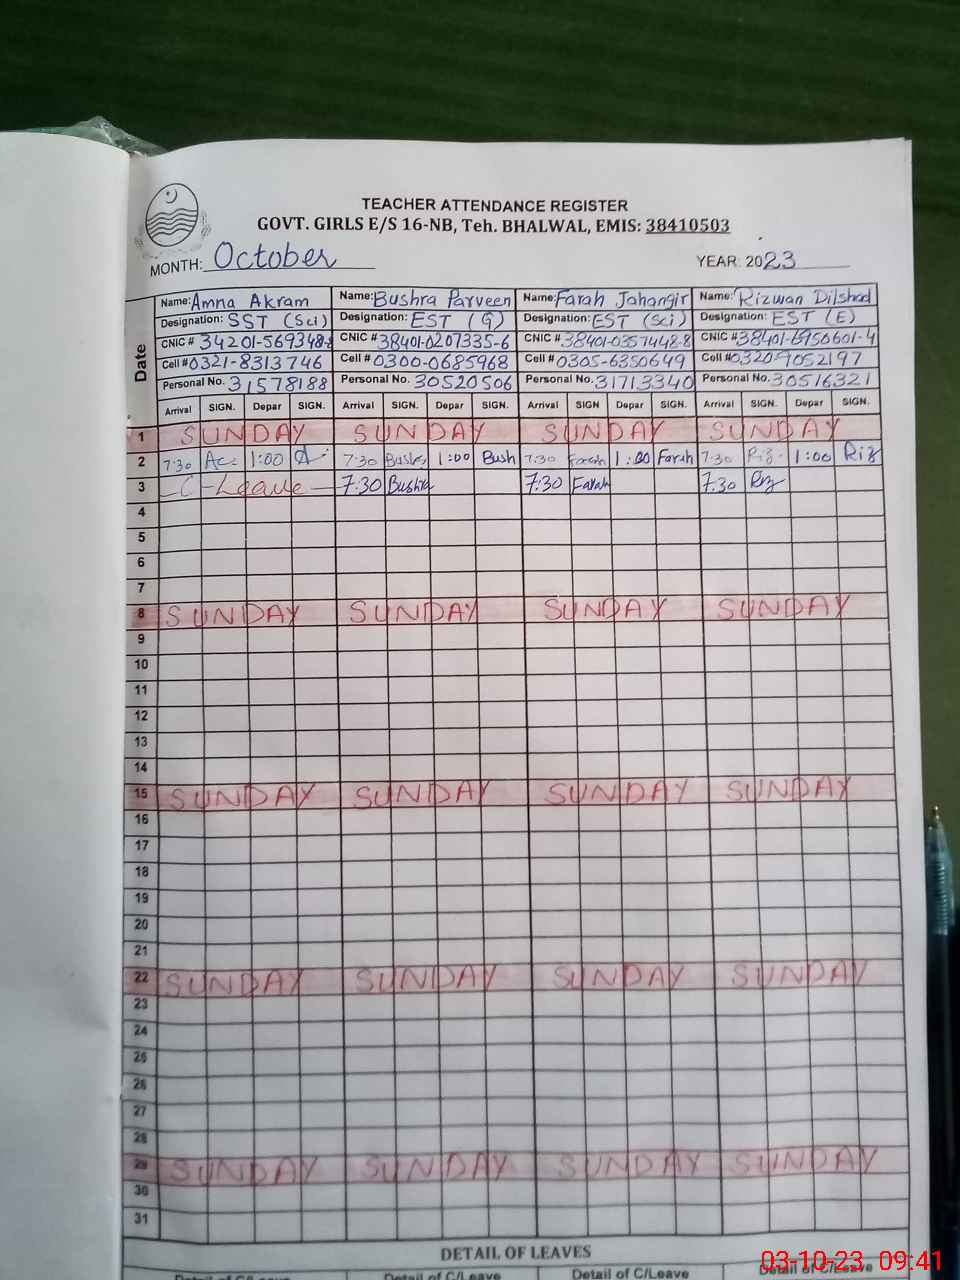 TEACHER ATTENDANCE REGISTER
GOVT. GIRLS E/S 16-NB, Teh. BHALWAL, EMIS: 38410503
MONTH: October YEAR: 2023
Date
Name: Amna Akram Name: Bushra Parveen Name: Farah Jahangir Name: Rizwan Dilshad
Designation: SST (Sci) Designation: EST (G) Designation: EST (Sci) Designation: EST (E)
CNIC # 34201-569348-8 CNIC # 38401-0207335-6 CNIC # 38401-0357448-8 CNIC # 38401-6950601-4
Cell # 0321-8313746 Cell # 0300-0685968 Cell # 0305-6350649 Cell # 0320-9052197
Personal No. 31578188 Personal No. 30520506 Personal No. 31713340 Personal No. 30516321
Arrival SIGN. Depar SIGN. Arrival SIGN. Depar SIGN. Arrival SIGN Depar SIGN. Arrival SIGN. Depar SIGN.
1 SUNDAY SUNDAY SUNDAY SUNDAY
2 7:30 1:00 7:30 Bush 1:00 Bush 7:30 Farah 1:00 Farah 7:30 Riz 1:00 Riz
3 C-Leave 7:30 Bushra 7:30 Farah 7:30 Riz
4
5
6
7
8 SUNDAY SUNDAY SUNDAY SUNDAY
9
10
11
12
13
14
15 SUNDAY SUNDAY SUNDAY SUNDAY
16
17
18
19
20
21
22 SUNDAY SUNDAY SUNDAY SUNDAY
23
24
25
26
27
28
29 SUNDAY SUNDAY SUNDAY SUNDAY
30
31
DETAIL OF LEAVES
Detail of C/Leave Detail of C/Leave Detail of C/Leave Detail of C/Leave
03-10-23 09:41